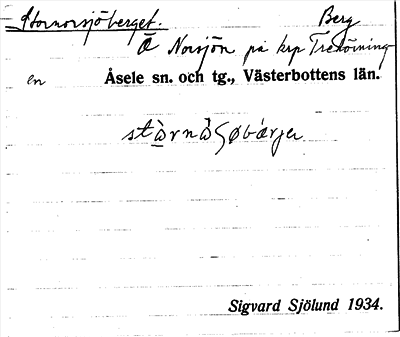 Stornorsjöberget. Berg
Ö Norsjön på krp Trehörning
en Åsele sn. och tg., Västerbottens län.
Sigvard Sjölund 1934.